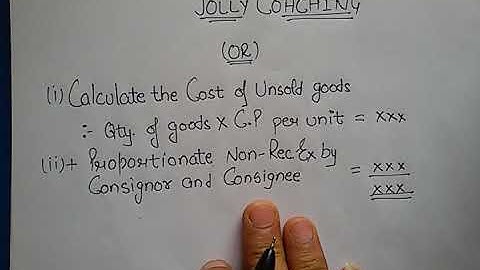 JOLLY COACHING
(OR)
(i) Calculate the Cost of Unsold goods
:- Qty. of goods X C.P per unit = xxx
(ii)+ Proportionate Non-Rec Ex by = xxx
Consignor and Consignee xxx